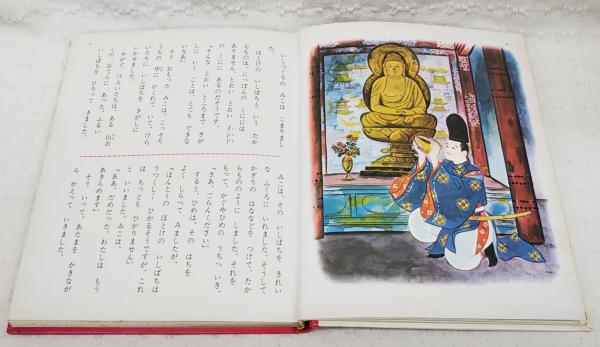 いしづくりの みこは こまりまし
た。
ほとけの いしばちと いう たか
らものは、にっぽんの くにには
ありません。とおい とおい インド
の くにに あるのだそうです。
「そんな とおい ところまで さが
しに いく ことは、とても できな
いなあ。」
そう おもった みこは、こっそり
うちの 中に かくれて いて、けら
いたちに いしばちを さがしに
いかせました。
やがて けらいたちは、ある 山お
くの おてらに あった、ふるい
いしばちを ひろって きました。
みこは その いしばちを きれい
な ふくろに いれました。そうして
かざりの はななどを つけて、たか
らもののように しました。それを
もって、かぐやひめの うちへ いき、
「さあ、ごらんください。」
すると、ひめは、その はちを
よく しらべて みましたが、
「ほんとうの ほとけの いしばちは
うつくしく ひかるそうですが、これ
は ちっとも ひかりません。」
と いいました。みこは、
「ああ、だめだった。わたしは もう
あきらめます。」
そう いって、あたまを かきなが
ら かえって いきました。